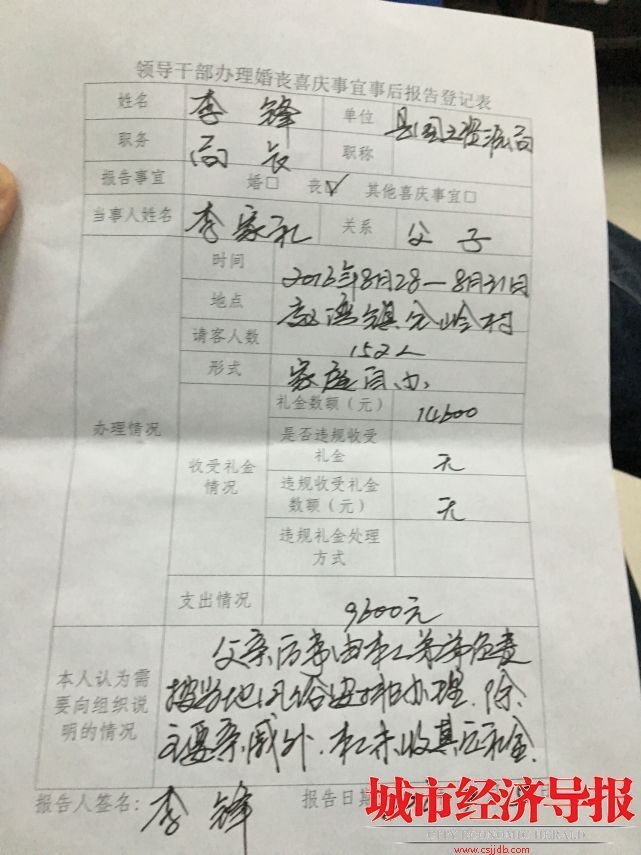 领导干部办理婚丧喜庆事宜事后报告登记表
姓名 李锋 单位 县国土资源局
职务 局长 职称
报告事宜 婚□ 丧☑ 其他喜庆事宜□
当事人姓名 李家礼 关系 父子
办理情况
时间 2016年8月28—8月31日
地点 镇 岭村
请客人数 152人
形式 家庭自办
收受礼金情况
礼金数额（元） 14600
是否违规收受
礼金 无
违规收受礼金
数额（元） 无
违规礼金处理
方式
支出情况 9600元
本人认为需
要向组织说
明的情况
父亲后事由本人弟弟负责
按当地风俗安排办理.除
主要亲戚外.本人未收其它礼金.
报告人签名：李锋 报告日期
城市经济导报
CITY ECONOMIC HERALD
www.csjjdb.com